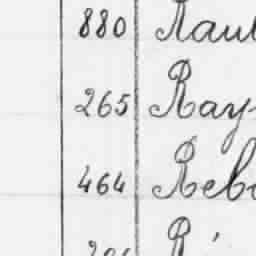 880 Raul
265 Ray
464 Reb